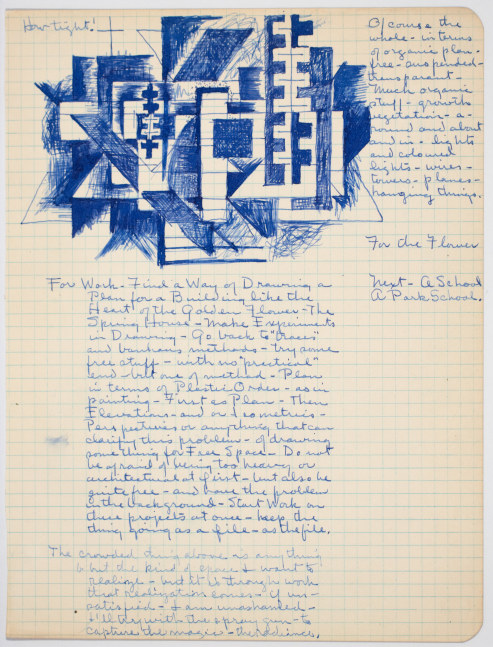 How tight!
Of course the
whole - in terms
of organic plan -
free - suspended -
transparent -
Much organic
stuff - growth
vegetation - a-
round and about
and in - lights
and coloured
lights - wires -
towers - planes -
hanging things.
For the Flower
Next - A School
A Park School.
For Work - Find a Way of Drawing a
Plan for a Building like the
Heart of the Golden Flower - The
Spring House - Make Experiments
in Drawing - Go back to "traces"
and bauhaus methods - try some
free stuff - with no "practical"
end - but one of method - Plan
in terms of Plastic Order - as in
painting - First as Plan - Then
Elevations - and or isometrics -
Perspectives or anything that can
clarify this problem - of drawing
something for Free Space - Do not
be afraid of being too heavy or
architectural at first - but also be
quite free - and have the problem
in the background - Start Work on
three projects at once - keep the
thing going as a file - as the file.
The crowded thing above - is anything
but the kind of space I want to
realize - but it is through work
that realization comes - If un-
satisfied - I am unashamed -
I'll try with the spray gun - to
capture the magic - the radiance.